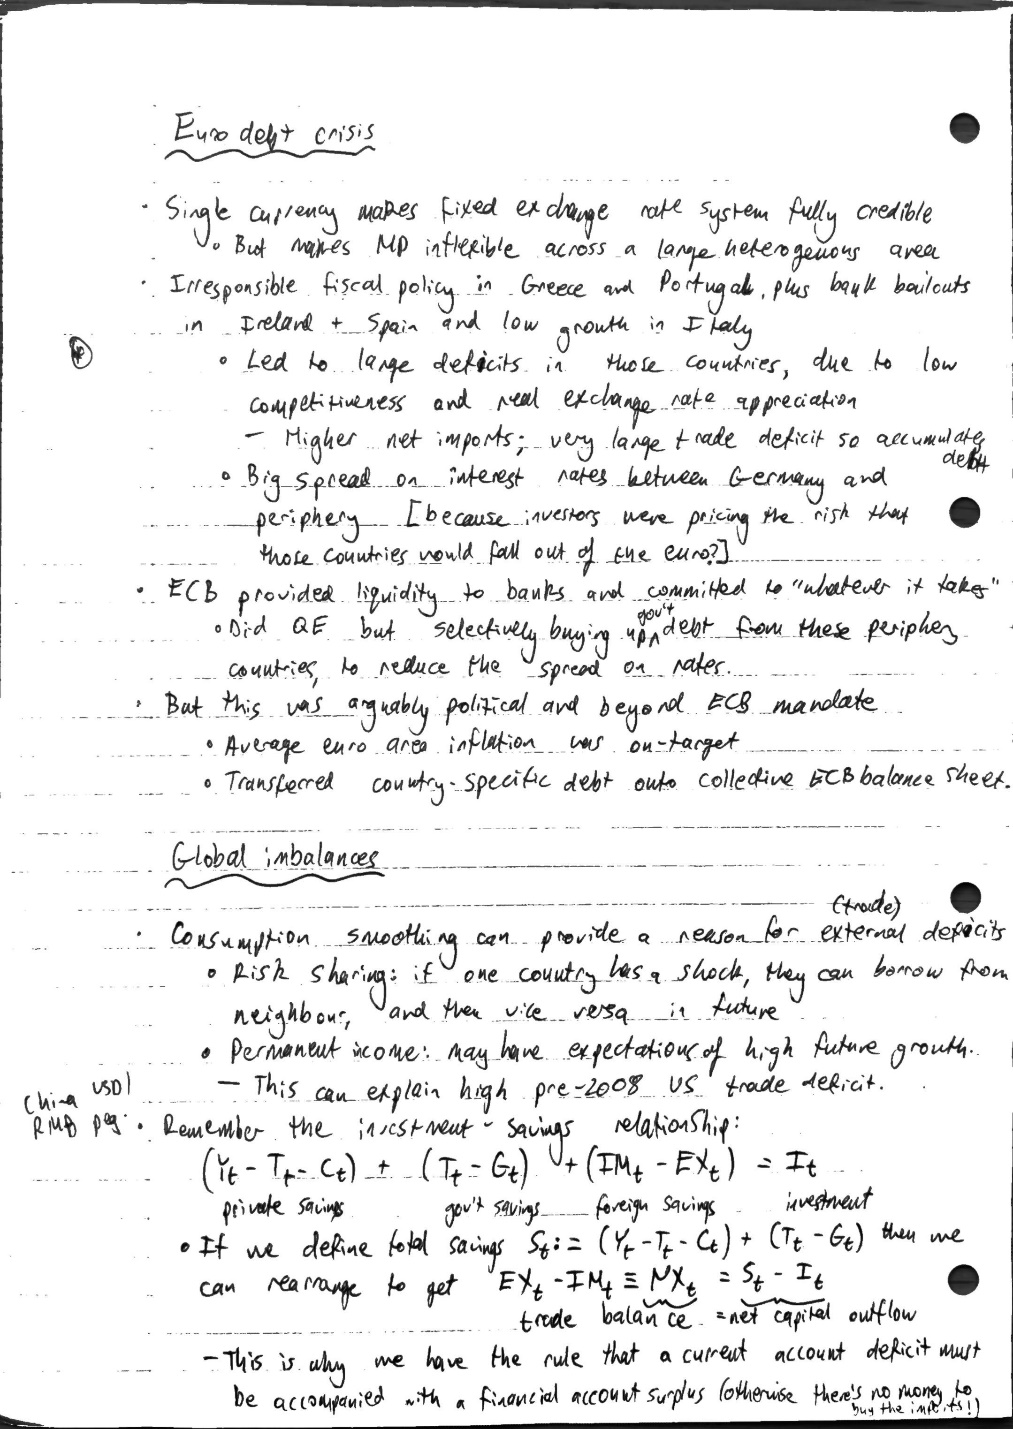 Euro debt crisis
· Single currency makes fixed exchange rate system fully credible
∘ But makes MP inflexible across a large heterogenous area
· Irresponsible fiscal policy in Greece and Portugal, plus bank bailouts
in Ireland + Spain and low growth in Italy
∘ Led to large deficits in those countries, due to low
competitiveness and real exchange rate appreciation
– Higher net imports; very large trade deficit so accumulates
debt
∘ Big spread on interest rates between Germany and
periphery [because investors were pricing the risk that
those countries would fall out of the euro?]
· ECB provided liquidity to banks and committed to "whatever it takes"
∘ Did QE but selectively buying up gov't debt from these periphery
countries, to reduce the spread on rates.
· But this was arguably political and beyond ECB mandate
∘ Average euro area inflation was on-target
∘ Transferred country-specific debt onto collective ECB balance sheet.
Global imbalances
· Consumption smoothing can provide a reason for external (trade) deficits
∘ Risk sharing: if one country has a shock, they can borrow from
neighbour, and then vice versa in future
∘ Permanent income: may have expectations of high future growth.
– This can explain high pre-2008 US trade deficit.
China USD/
RMB peg
· Remember the investment - savings relationship:
(Yt - Tt - Ct) + (Tt - Gt) + (IMt - EXt) = It
private savings gov't savings foreign savings investment
∘ If we define total savings St := (Yt - Tt - Ct) + (Tt - Gt) then we
can rearrange to get EXt - IMt ≡ NXt = St - It
trade balance = net capital outflow
– This is why we have the rule that a current account deficit must
be accompanied with a financial account surplus (otherwise there's no money to
buy the imports!)